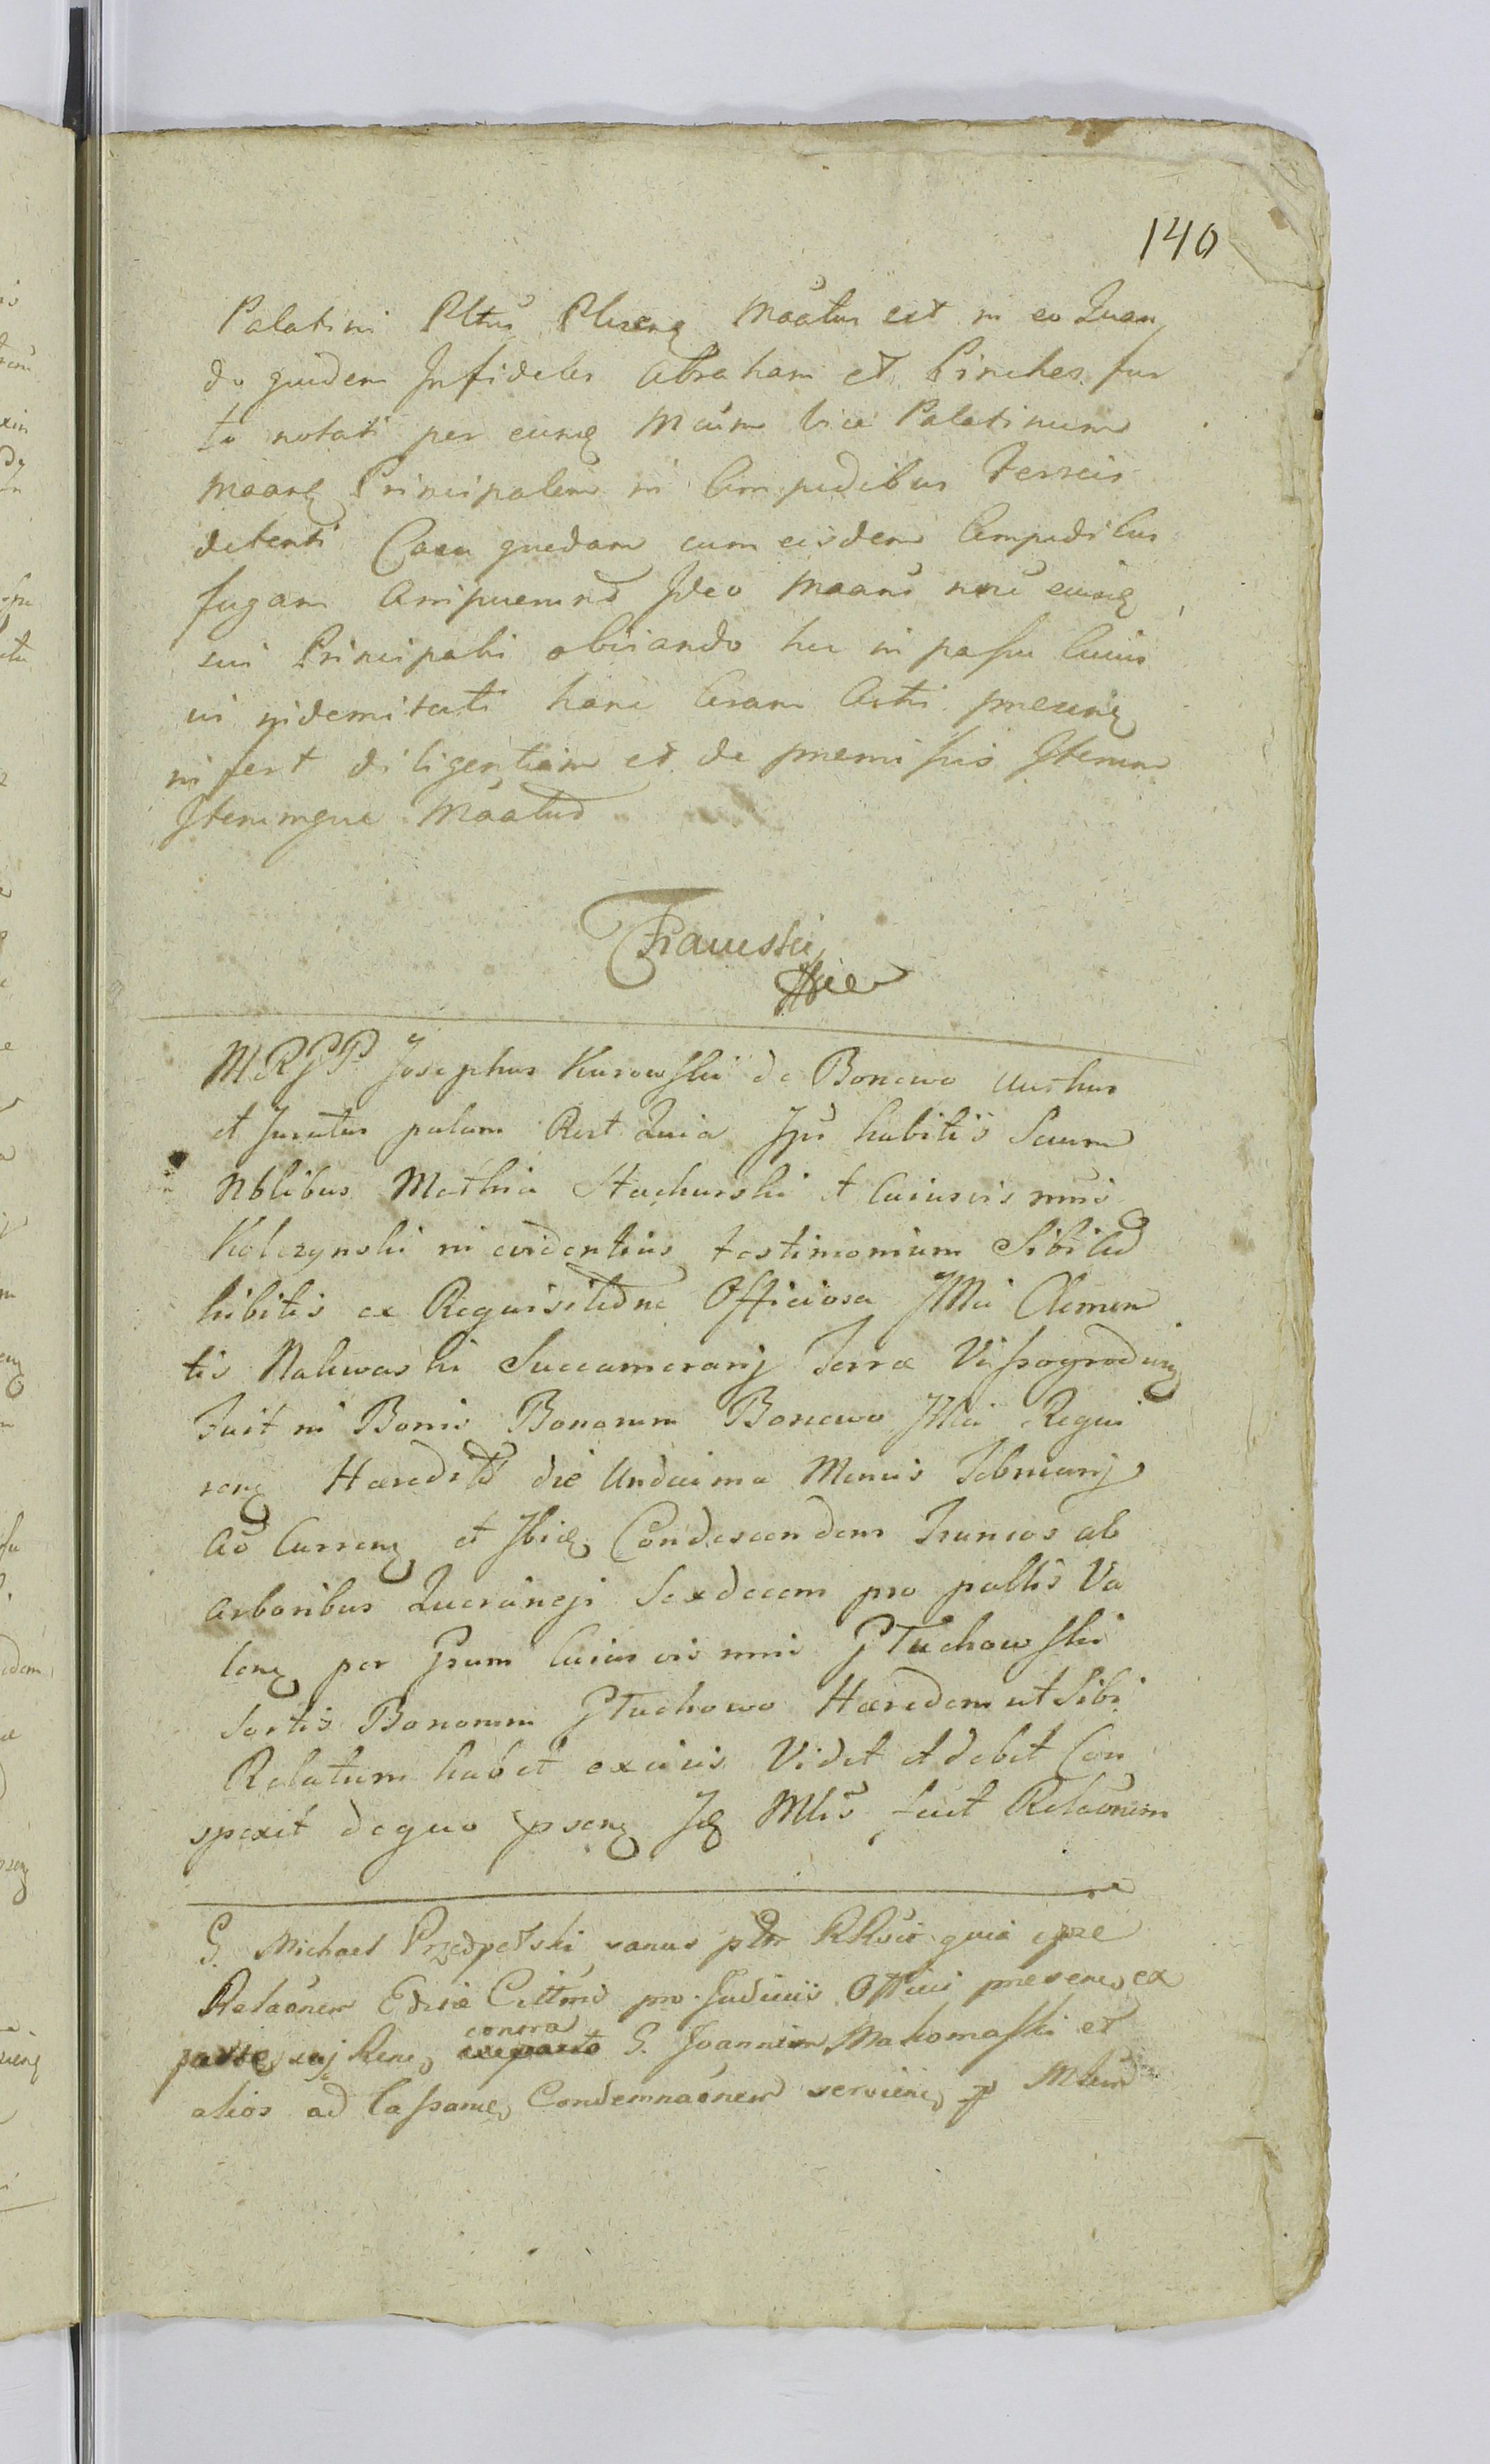 140
Palatini Pltūs Plucenē Māatus est in eo Quan
do quidem Infideles Abraham et Pinches fur
to notati per eund Mcūm Vice Palatinum
Maanē Principalem in Compedibus Ferreis
detenti Casu quodam cum eisdem Compedibus
fugam Arripuerunt Ideo Maans nōe eiusd
sui Principalis obviando hu in passu cuius
vis indemitati hanc coram Actis presenē
infert diligentiam et de premissis Iterum
Iterumque Māatur
MRGP Josephus Kurowski de Bonewo Authus
et Juratus palam Rert Quia Ips habitis Secum
Nblibus Mathia Stachurski et Cuiusvis nnis
Kolczynski in evidentius testimonium Sibi ad
hibitis ex Requisitione Officiosa JMci Clemen
tis Nakwaski Succamerarij Terræ Vissogroduē
Fuit in Bonis Bonorum Bonewo JMci Requi
renē Hæredts die Undecima Mensis Februarij
Ao Currenē et Ibid Condescendens Truncos ab
arboribus Quercinegi Sexdecem pro paltis Va
lenē per Gsum Cuiusvis nnis Głuchowski
Sortis Bonorum Głuchowo Hæredem ut Sibi
Relatum habet excisis Vidit et debet Con
spexit de quo psenē Id Mlis fecit Relaōnem
G. Michael Przedpełski sanus pltr RRvit quia ipse
Relaōnem Edicæ Cittnis pro Judiciis Officii presene ex
parte suj Rene contra G. Joannem Makomaski et
alios ad Cassane Condemnaōnem serviene p Mlem